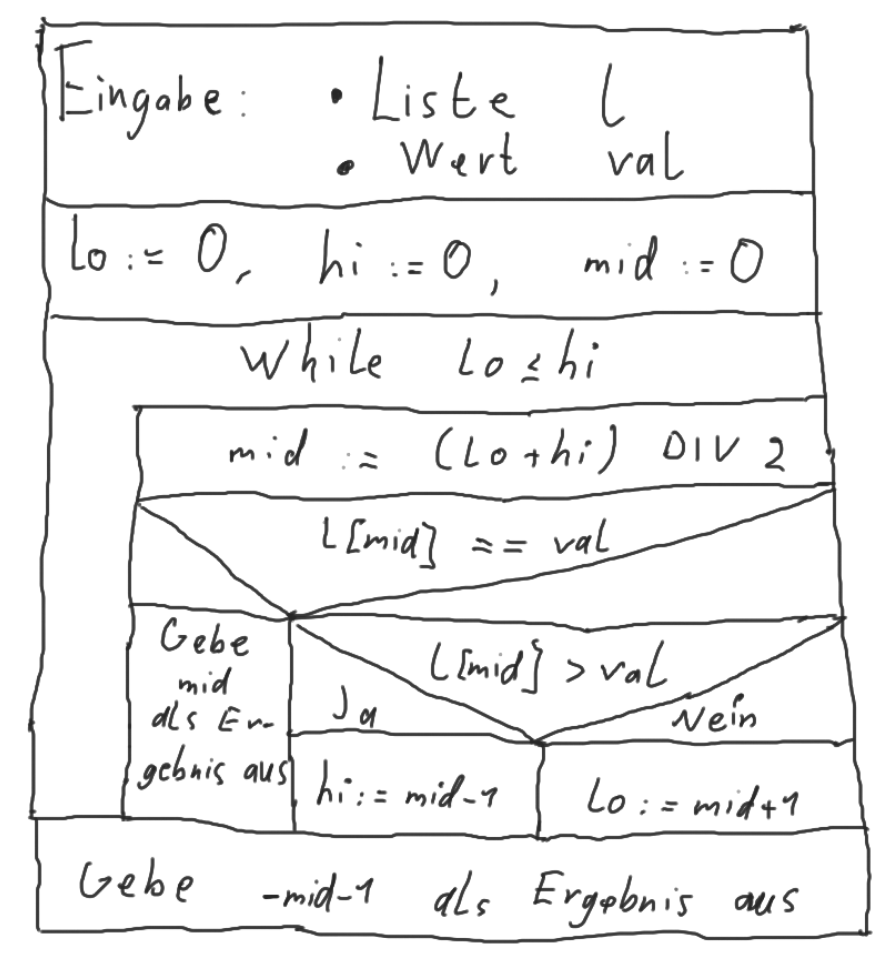 Eingabe: • Liste l
• Wert val
lo := 0, hi := 0, mid := 0
While lo ≤ hi
mid := (lo + hi) DIV 2
l[mid] == val
Gebe
mid
als Er-
gebnis aus
l[mid] > val
Ja Nein
hi := mid-1
lo := mid+1
Gebe -mid-1 als Ergebnis aus